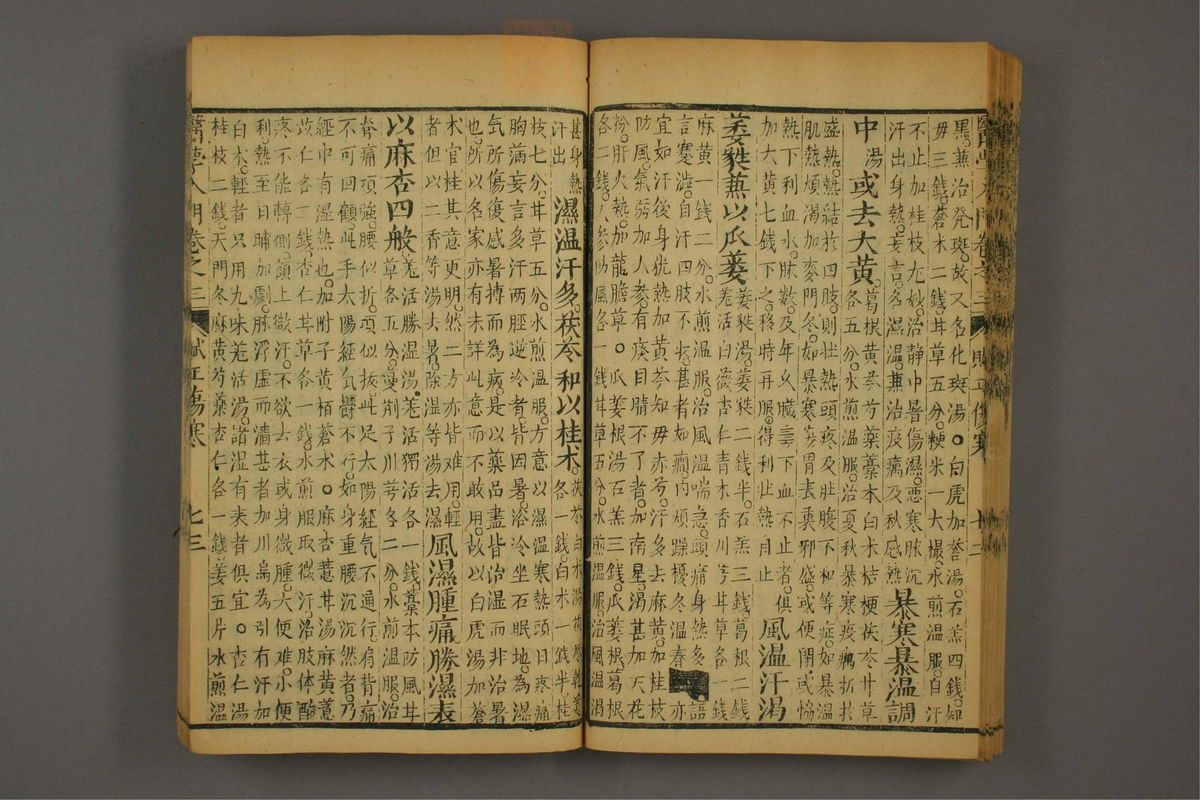 黑兼治発斑故又名化斑湯○白虎加蒼湯石羔四錢知
毋三錢蒼木二錢耳草五分粳米一大撮水煎溫服自汗
不止加桂枝尤妙治靜巾暑傷濕惡寒脉沉
汗出身熱妄言名濕溫兼治疫癘及秋感熱暴寒暴温調
中湯或去大黄葛根黄芩芍藥藁本白术桔梗茯苓甘草
各五分水煎溫服治夏秋暴寒疫癘折於
盛熱熱結於四肢則壯熱頭疼及肚腹下和等症如暴溫
肌熱煩渴加麥門冬如暴寒胃表邪盛或便閉或恊
熱下利血水脉數及年久臓下血不止者俱
加大黄七錢下之移時再服得利壯熱自止風温汗渴
萎㽔兼以瓜蔞萎㽔湯萎㽔二錢半石羔三錢葛根二錢
羌活白薇杏仁青木香川芎耳草各一錢
麻黄一錢二分水煎溫服治風溫喘急頭痛身熱多語
言蹇澁自汗四肢不收甚者如癎内煩躁擾冬溫春亦
宜如汗後身犹熱加黄芩知毋赤芍汗多去麻黄加桂枝
防風氣弱加人參有痰目睛不了者加南星渴甚加天花
粉肝火熱加龍膽草○瓜蔞根湯石羔三錢瓜蔞根葛根
各二錢人參防風各一錢耳草五分水煎溫服治風溫渴
甚身熱汗出濕温汗多茯苓和以桂术茯苓白术湯茯苓乾姜
各一錢白术一錢半桂
枝七分耳草五分水煎溫服方意以濕溫寒熱頭目疼痛
胸滿妄言多汗兩脛逆冷者皆因暑浴冷坐石眠地為濕
氣所傷復感暑摶而為病是以藥品盡皆治湿而非治暑
也所以名家亦有未詳此意而不敢用故以白虎湯加蒼
木官桂其意更明然二方亦皆难用輕
者但以二香等湯去暑除湿等湯去濕風濕腫痛勝濕表
以麻杏四般羌活勝湿湯羌活獨活各一錢藁本防風耳
草各五分蔓荆子川芎各二分水煎温服治
脊痛項強腰似折項似抜此足太陽経氣不通行肩背痛
不可回顧此手太陽經氣欝不行如身重腰沉沉然者乃
經中有湿熱也加附子黄栢蒼木○麻杏薏耳湯麻黄薏
苡仁各二錢杏仁耳草各一錢水煎服取微汗治肢体酸
疼不能轉側額上㣲汗不欲去衣或身微腫大便难小便
利熱至日晡加劇脉浮虚而濇甚者加川烏為引有汗加
白术輕者只用九味羌活湯諸湿有表者俱宜○杏仁湯
桂枝二錢天門冬麻黄芍藥杏仁各一錢姜五片水煎溫
醫學入門卷之三 賦正傷寒 七三